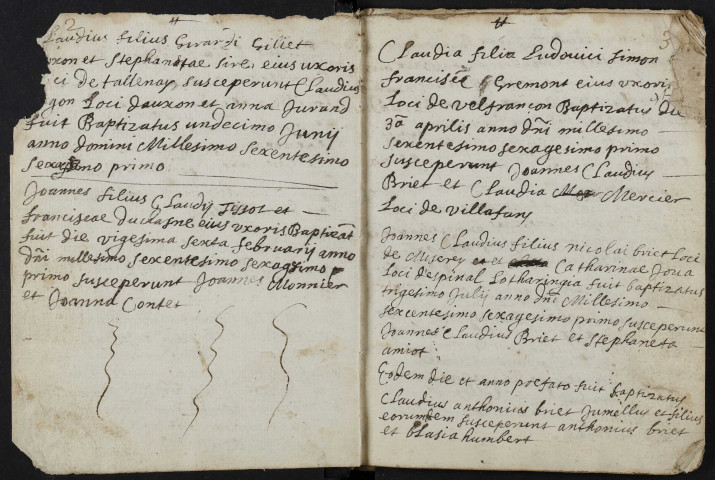 2
Claudius filius Girardi Gillet
uxon et Stephanotae Sire eius uxoris
ci de tallenay susceperunt Claudius
gon Loci dauxon et anna Jurand
fuit Baptizatus undecimo Junij
anno domini Millesimo sexentesimo
primo
Joannes filius Claudij Tissot et
franciscae ducrasne eius uxoris Baptizat
fuit die vigesima sexta februarij anno
dni millesimo sexentesimo sexagesimo
primo susceperunt Joannes Monnier
et Joanna Contet
3
Claudia filia Ludovici simon
francisce Gremont eius uxoris
Loci de velfrancon Baptizatus
3a aprilis anno dni millesimo
sexentesimo sexagesimo primo
susceperunt Joannes Claudius
Briet et Claudia Mercier
Loci de villafans
Joannes Claudius filius nicolai briet Loci
de Miserey et Catharinae Joua
Loci despinal Lotharingia fuit baptizatus
trigesimo Julij anno dni Millesimo
sexcentesimo sexagesimo primo susceperunt
Joannes Claudius Briet et Stephaneta
amiot
Eodem die et anno prefato fuit baptizatus
Claudius anthonius briet Jumellus et filius
eorumdem susceperunt anthonius briet
et blasia humbert